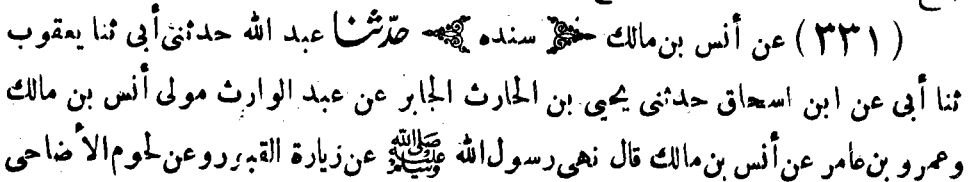 ( ٣٣١ ) عن أنس بن مالك سنده حدّثنا عبد الله حدثنى أبى ثنا يعقوب
ثنا أبى عن ابن اسحاق حدثنى يحيى بن الحارث الجابر عن عبد الوارث مولى أنس بن مالك
وعمرو بن عامر عن أنس بن مالك قال نهى رسول الله ﷺ عن زيارة القبور وعن لحوم الأضاحى